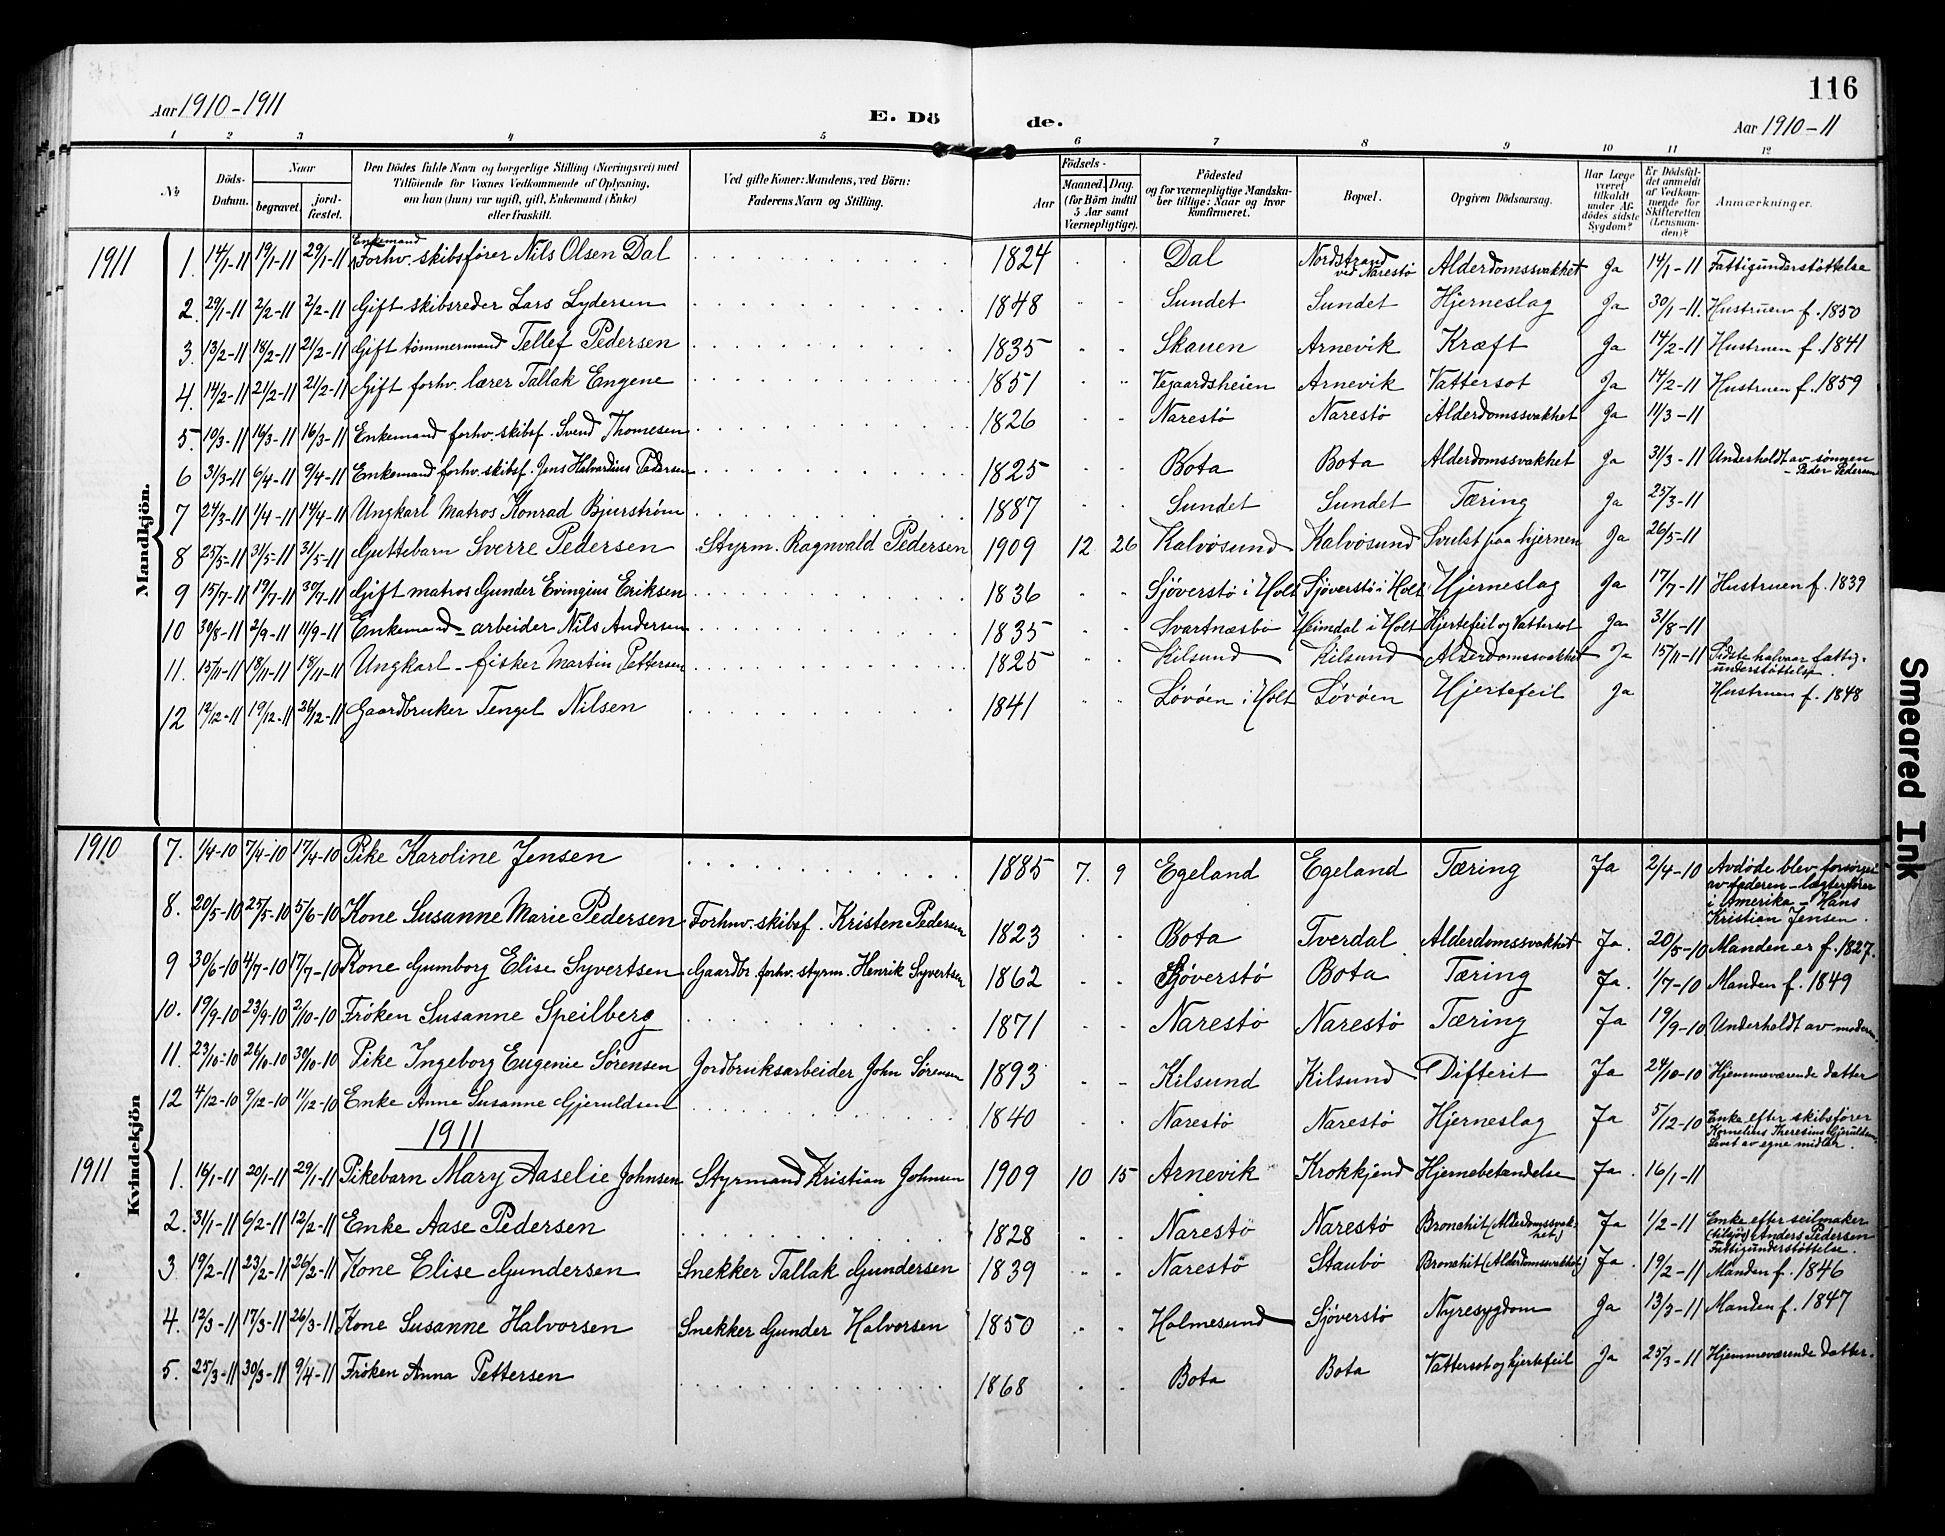 116
Aar 1910-1911
E. Dö de.
Aar 1910-11
1 2 3 4 5 6 7 8 9 10 11 12
№ Döds-Datum. Naar begravet. jordfæstet. Den Dödes fulde Navn og borgerlige Stilling (Næringsvei) med Tilföiende for Voxnes Vedkommende af Oplysning, om han (hun) var ugift, gift, Enkemand (Enke) eller fraskilt. Ved gifte Koner: Mandens, ved Börn: Faderens Navn og Stilling. Aar Födsels- Maaned. Dag. (for Börn indtil 5 Aar samt Værnepligtige). Födested og for værnepligtige Mandskaber tillige: Naar og hvor konfirmeret. Bopæl. Opgiven Dödsaarsag. Har Læge været tilkaldt under Afdödes sidste Sygdom? Er Dödsfaldet anmeldt af Vedkommende for Skifteretten (Lensmanden)? Anmærkninger.
Mandkjön.
1911 1. 14/1-11 19/1-11 29/1-11 Enkemand Forhv. skibsfører Nils Olsen Dal 1824 Dal Nordstrand ved Narestø Alderdomssvakhet Ja 14/1-11 Fattigunderstøttelse
2. 29/1-11 2/2-11 2/2-11 Gift skibsreder Lars Lydersen 1848 Sundet Sundet Hjerneslag Ja 30/1-11. Hustruen f. 1850
3. 13/2-11 18/2-11 21/2-11 Gift tømmermand Tellef Pedersen 1835 Skauen Arnevik Kræft Ja 14/2-11 Hustruen f. 1841
4. 14/2-11 21/2-11 21/2-11 Gift forhv. lærer Tallak Engene 1851 Vegaardsheien Arnevik Vattersot Ja 14/2-11 Hustruen f. 1859
5. 10/3-11 16/3-11 16/3-11 Enkemand forhv. skibsf. Svend Thomesen 1826 Narestø Narestø Alderdomssvakhet Ja 11/3-11
6 31/3-11 6/4-11 9/4-11 Enkemand forhv. skibsf. Jens Halvardius Pedersen 1825 Bota Bota Alderdomssvakhet Ja 31/3-11 Underholdt av sønnen - Peder Pedersen
7 24/3-11 1/4-11 14/4-11 Ungkarl Matros Konrad Bjurstrøm 1887 Sundet Sundet Tæring Ja 25/3-11
8 25/5-11 31/5-11 31/5-11 Guttebarn Sverre Pedersen Styrm. Ragnvald Pedersen 1909 12 26 Kalvøsund Kalvøsund Svulst paa hjernen Ja 26/5-11
9 15/7-11 19/7-11 30/7-11 Gift matros Gunder Evingius Eriksen 1836 Sjøverstø i Holt Sjøverstø i Holt Hjerneslag Ja 17/7-11 Hustruen f. 1839
10 30/8-11 2/9-11 11/9-11 Enkemand - arbeider Nils Andersen 1835 Svartnæsbø Heimdal i Holt Hjertefeil og Vattersot Ja 31/8-11
11. 15/11-11 18/11-11 18/11-11 Ungkarl - fisker Martin Pettersen 1825 Kilsund Kilsund Alderdomssvakhet Ja 15/11-11 Sidste halvaar fattigunderstøttelse.
12 12/12-11 19/12-11 26/12-11 Gaardbruker Tengel Nilsen 1841 Løvøen i Holt Løvøen Hjertefeil Ja Hustruen f. 1848
Kvindekjön
1910 7. 1/4-10 7/4-10 17/4-10 Pike Karoline Jensen 1885 7. 9 Egeland Egeland Tæring Ja 2/4-10 Avdøde blev forsørget av faderen - lægterfører i Amerika - Hans Kristian Jensen.
8. 20/5-10 25/5-10 5/6-10 Kone Susanne Marie Pedersen Forhnv. skibsf. Kristen Pedersen 1823 Bota Tverdal Alderdomssvakhet Ja. 20/5-10 Manden er f. 1827.
9 30/6-10 4/7-10 17/7-10 Kone Gumborg Elise Syvertsen Gaardbr. forhv. styrm. Henrik Syvertsen 1862 Sjøverstø Bota Tæring Ja. 1/7-10 Manden f. 1849
10. 19/9-10 23/9-10 2/10-10 Frøken Susanne Speilberg 1871 Narestø Narestø Tæring Ja 19/9-10 Underholdt av moderen.
11. 23/10-10 26/10-10 30/10-10 Pike Ingeborg Eugenie Sørensen Jordbruksarbeider John Sørensen 1893 Kilsund Kilsund Difterit Ja 24/10-10 Hjemmeværende datter
12 4/12-10 9/12-10 11/12-10 Enke Anne Susanne Gjeruldsen 1840 Narestø Narestø Hjerneslag Ja 5/12-10 Enke efter skibsfører Kornelius Theresius Gjeruldsen Levet av egne midler.
1911
1911 1. 16/1-11 20/1-11 29/1-11 Pikebarn Mary Aaselie Johnsen Styrmand Kristian Johnsen 1909 10 15 Arnevik Krokkjend Hjernebetændelse Ja. 16/1-11
2. 31/1-11 6/2-11 12/2-11 Enke Aase Pedersen 1828 Narestø Narestø Bronchit (Alderdomssvakhet) Ja 1/2-11 Enke efter seilmaker (tilsjøs) Anders Pedersen Fattigunderstøttelse.
3 19/2-11 23/2-11 26/2-11 Kone Elise Gundersen Snekker Tallak Gundersen 1839 Narestø Staubø Bronchit (Alderdomssvakhet) Ja. 19/2-11 Manden f. 1846
4. 12/3-11 17/3-11 26/3-11 Kone Susanne Halvorsen Snekker Gunder Halvorsen 1850 Holmesund Sjøverstø Nyresygdom Ja 13/3-11 Manden f. 1847
5. 25/3-11 30/3-11 9/4-11 Frøken Anna Pettersen 1868 Bota Bota Vattersot og hjertefeil Ja 25/3-11 Hjemmeværende datter.
Smeared Ink